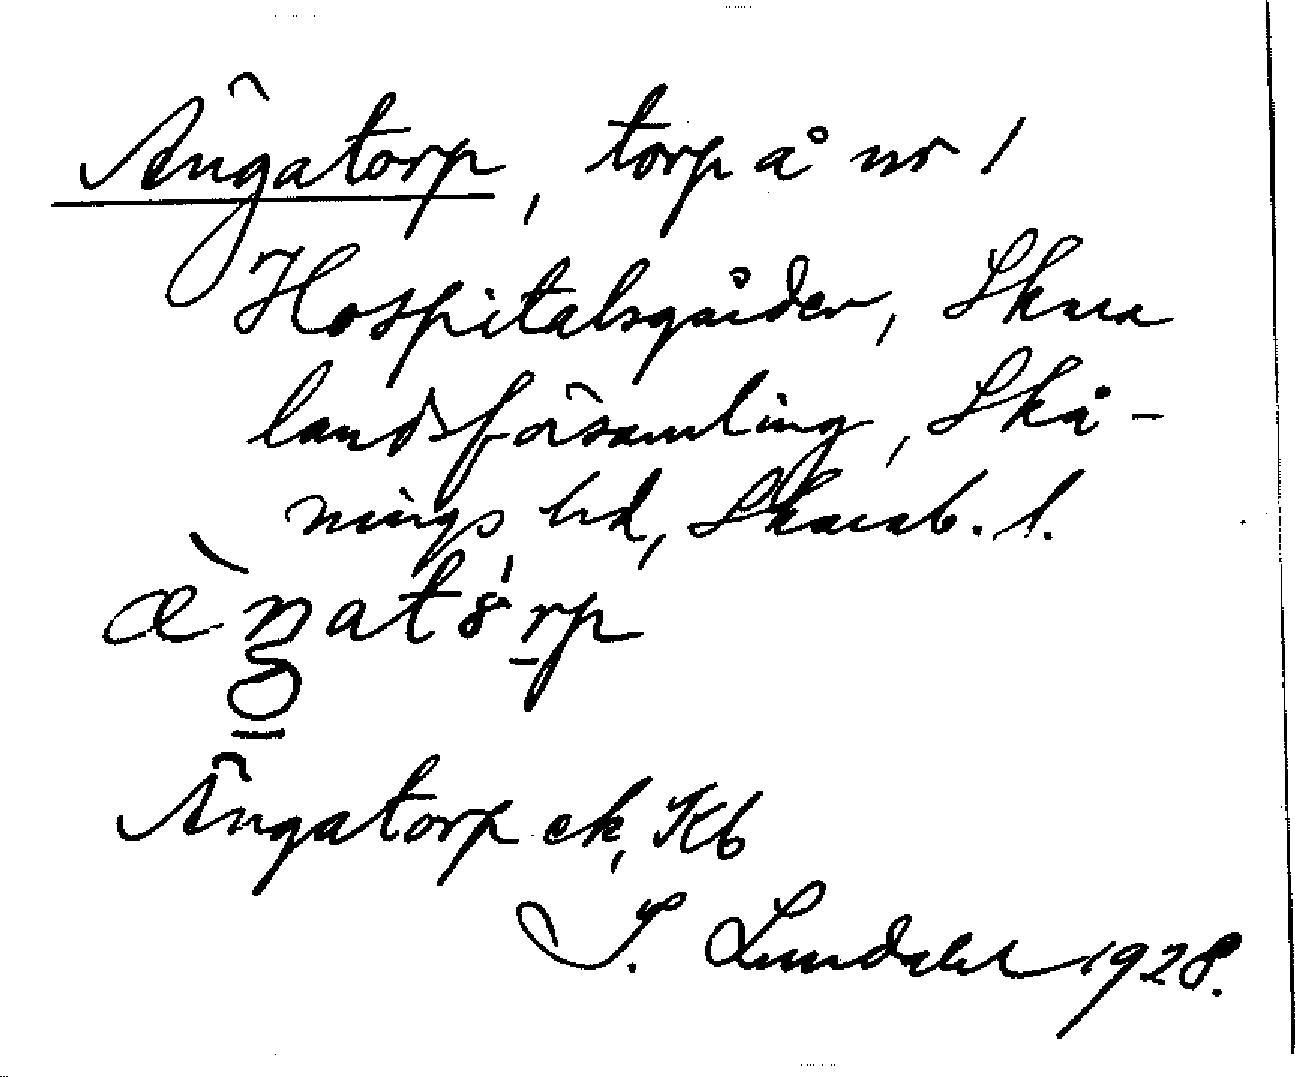 Ängatorp, torp å nr 1
Hospitalsgården, Skara
landsförsamling, Skå-
nings hd, Skarab. l.
æ̀ŋat
Ängatorp ek, Kb
I. Lundahl 1928.